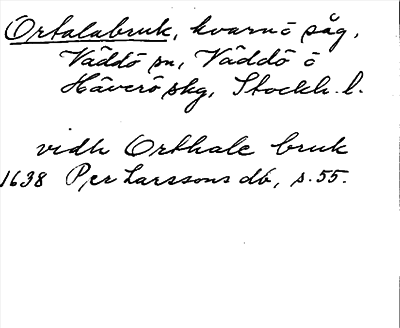 Ortalabruk, kvarn o såg,
Väddö sn, Väddö o
Häverö skg, Stockh. l.
vidh Orthale bruk
1638 Per Larssons db, s. 55.